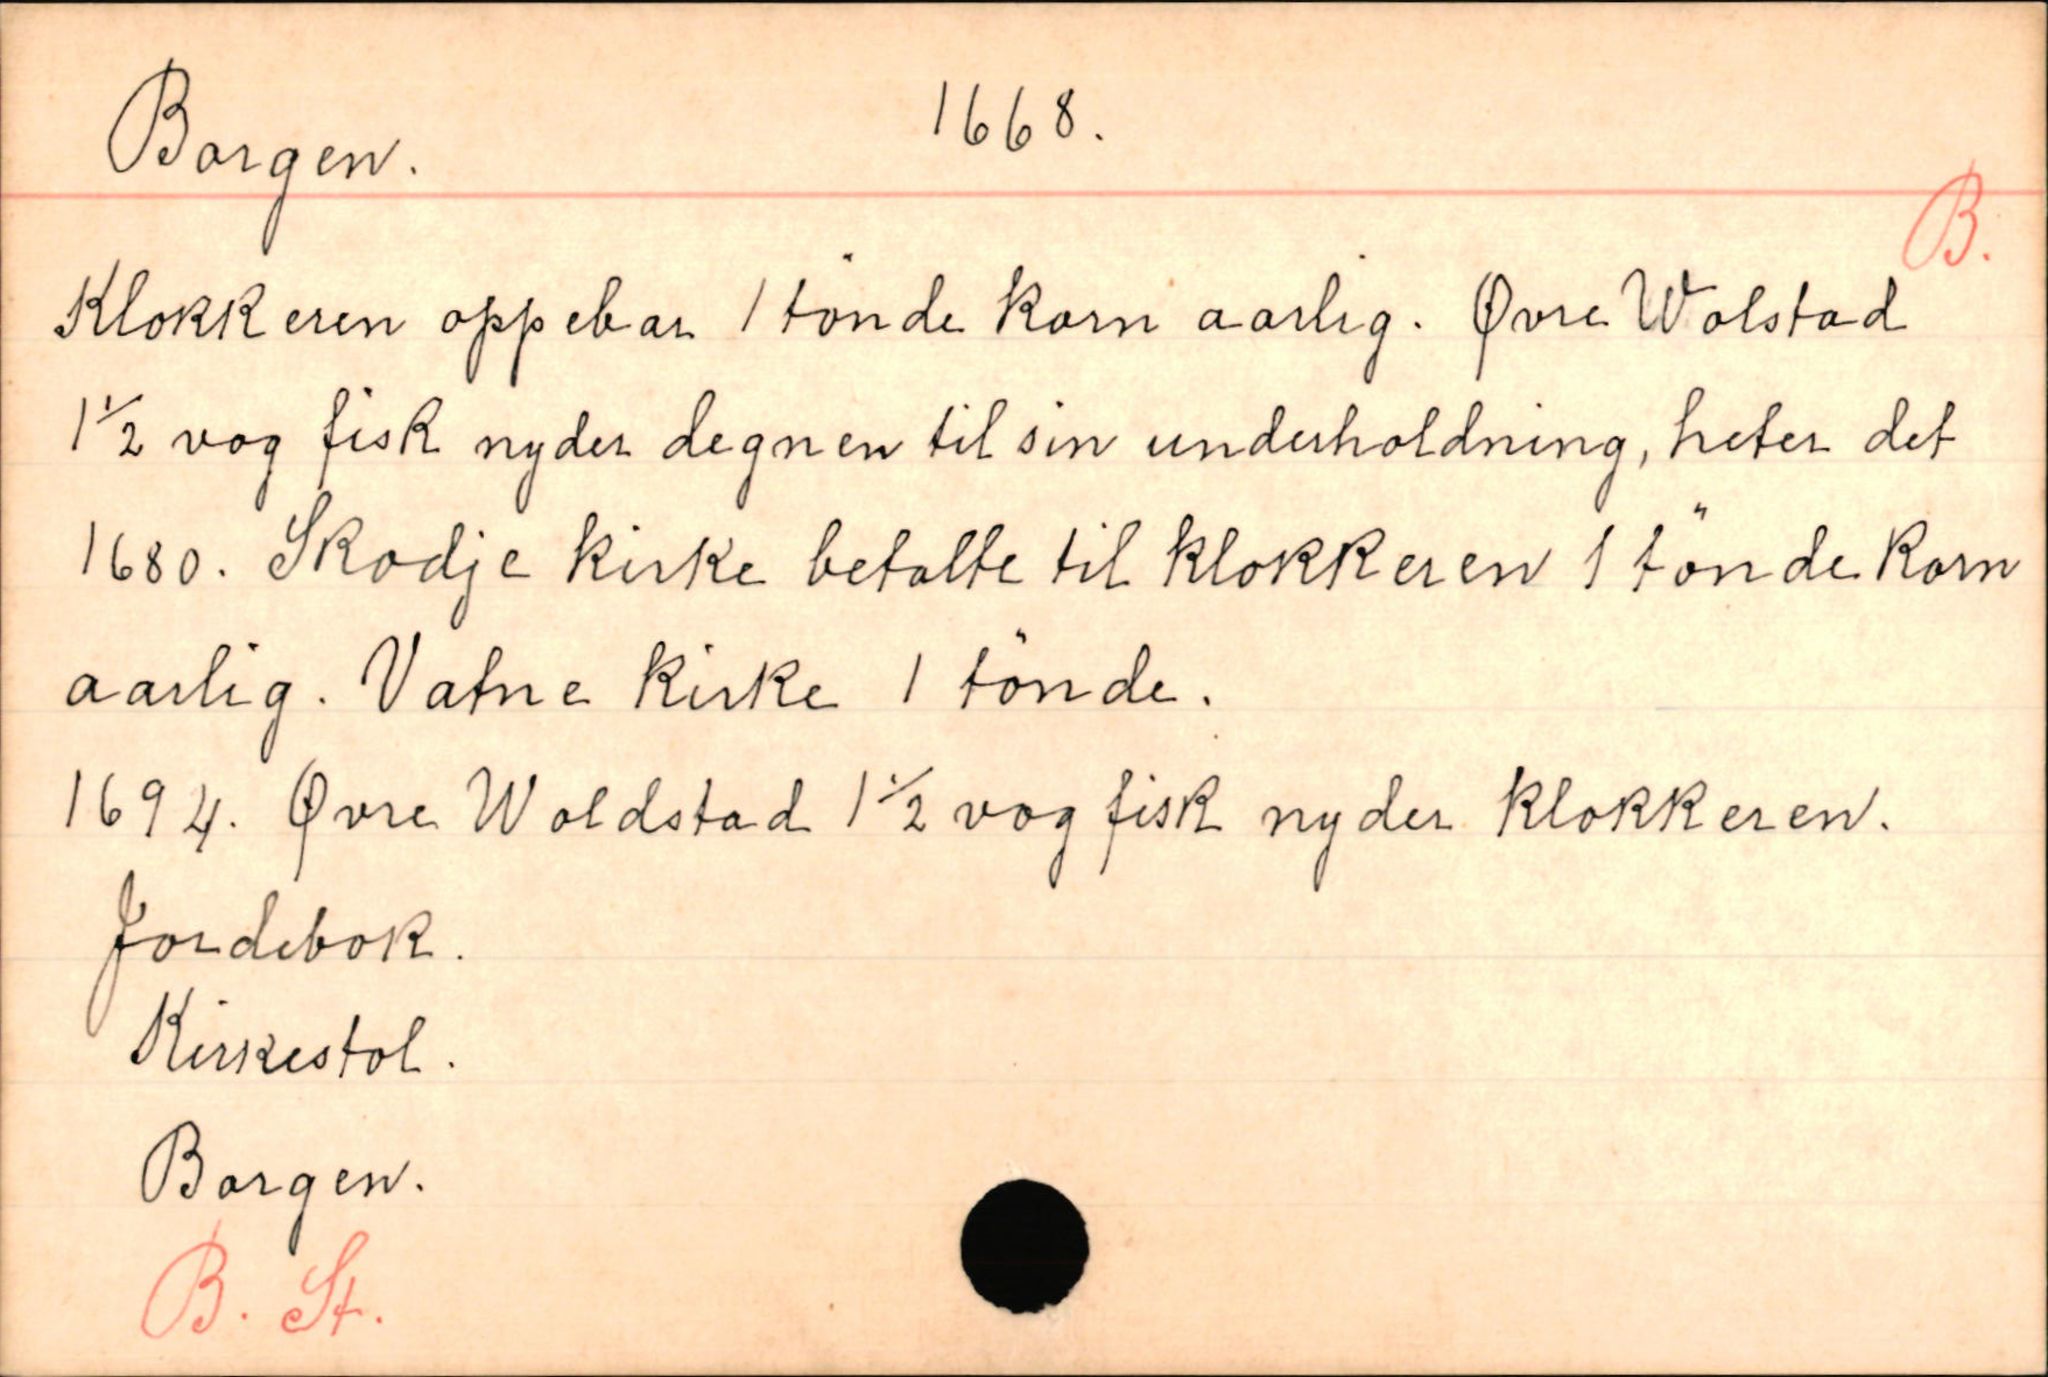 Borgen. 1668.
B.
Klokkeren oppebar 1 tönde korn aarlig. Øvre Wolstad
1½ vog fisk nyder degnen til sin underholdning, heter det
1680. Skodje kirke betalte til klokkeren 1 tönde korn
aarlig. Vatne kirke 1 tönde.
1694. Øvre Woldstad 1½ vog fisk nyder klokkeren.
Jordebok.
Kirkestol.
Borgen.
B. St.